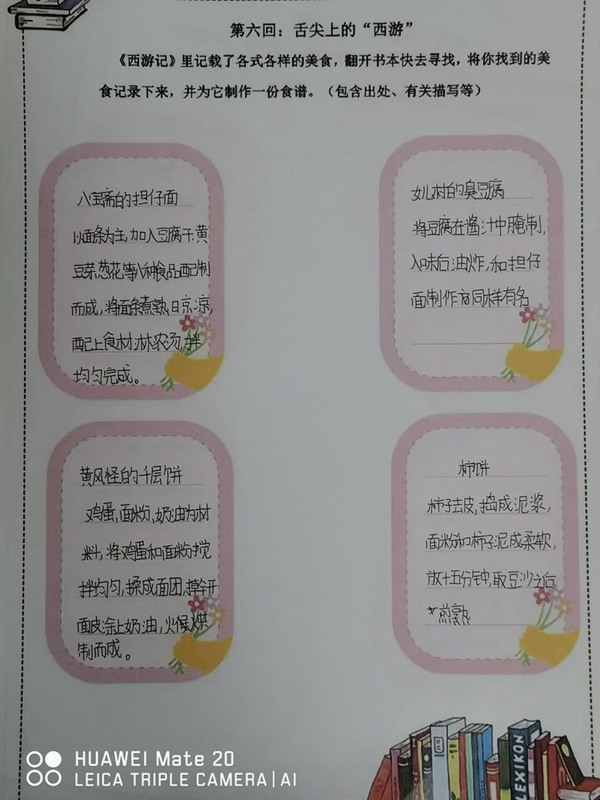 第六回：舌尖上的“西游”
《西游记》里记载了各式各样的美食，翻开书本快去寻找，将你找到的美
食记录下来，并为它制作一份食谱。（包含出处、有关描写等）
八宝斋的担仔面
以面条为主，加入豆腐干、黄
豆芽、葱花等八种食品配制
而成，将面条煮熟晾凉，
配上食材，淋浓汤，拌
均匀完成。
女儿村的臭豆腐
将豆腐在酱汁中腌制，
入味后油炸，和担仔
面制作方同样有名
黄风怪的千层饼
鸡蛋，面粉、奶油为材
料，将鸡蛋和面粉搅
拌均匀，揉成面团，擀开
面皮涂上奶油，火候烘
制而成。
柿饼
柿子去皮，捣成泥浆，
面粉和柿子泥成柔软，
放十五分钟，取豆沙之后
煎熟
LEXIKON
HUAWEI Mate 20
LEICA TRIPLE CAMERA | AI